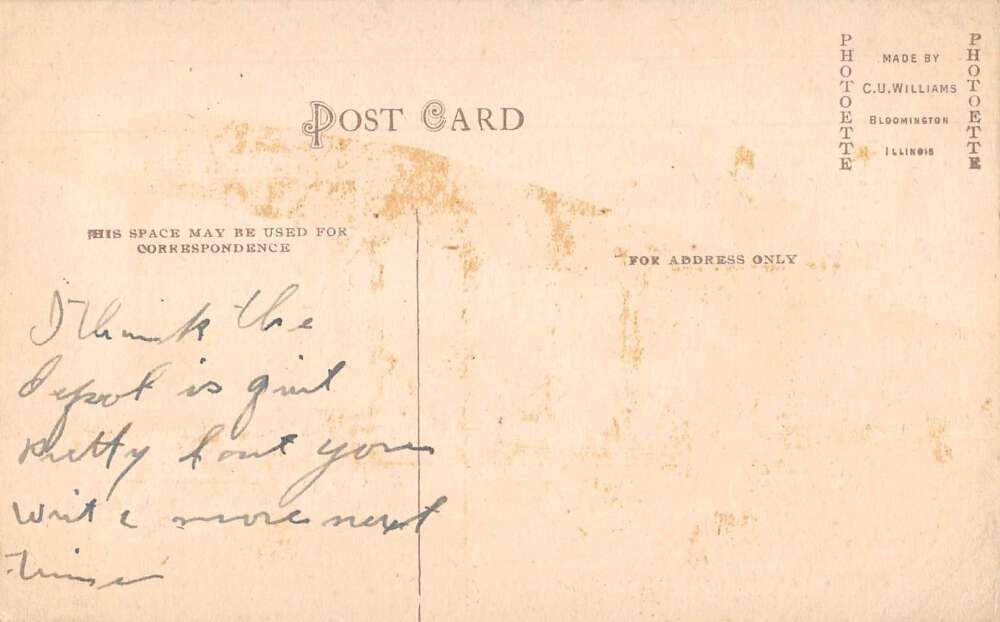 POST CARD
PHOTOETTE
MADE BY
C.U. WILLIAMS
BLOOMINGTON
ILLINOIS
PHOTOETTE
THIS SPACE MAY BE USED FOR
CORRESPONDENCE
FOR ADDRESS ONLY
I think the
depot is
pretty dont you
write more next
time